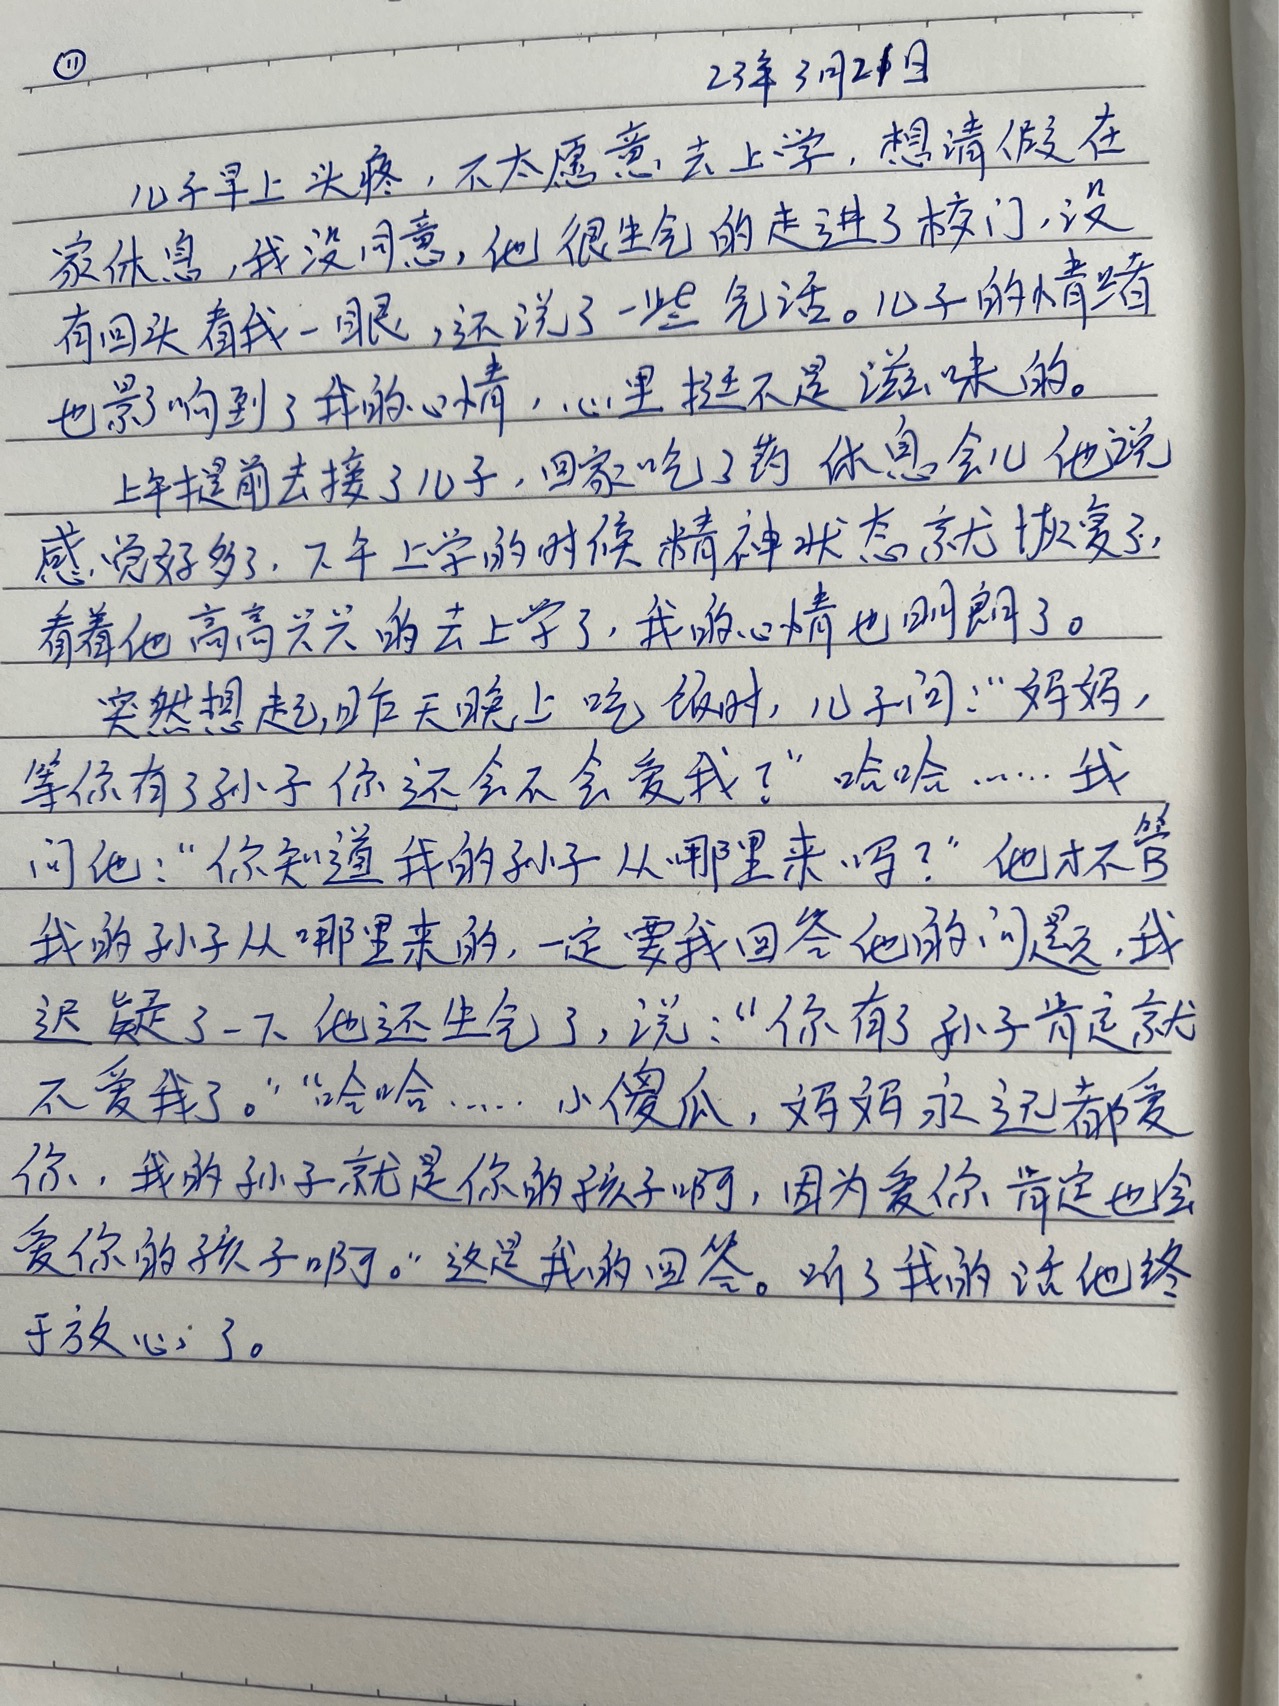 ⑪
23年3月21日
儿子早上头疼，不太愿意去上学，想请假在
家休息，我没同意，他很生气的走进了校门，没
有回头看我一眼，还说了一些气话。儿子的情绪
也影响到了我的心情，心里挺不是滋味的。
上午提前去接了儿子，回家吃了药休息会儿他说
感觉好多了，下午上学的时候精神状态就恢复了，
看着他高高兴兴的去上学了，我的心情也明朗了。
突然想起，昨天晚上吃饭时，儿子问：“妈妈，
等你有了孙子你还会不会爱我？”哈哈……我
问他：“你知道我的孙子从哪里来吗？”他才不管
我的孙子从哪里来的，一定要我回答他的问题，我
迟疑了一下他还生气了，说：“你有了孙子肯定就
不爱我了。”“哈哈……小傻瓜，妈妈永远都爱
你，我的孙子就是你的孩子啊，因为爱你肯定也会
爱你的孩子啊。”这是我的回答。听了我的话他终
于放心了。